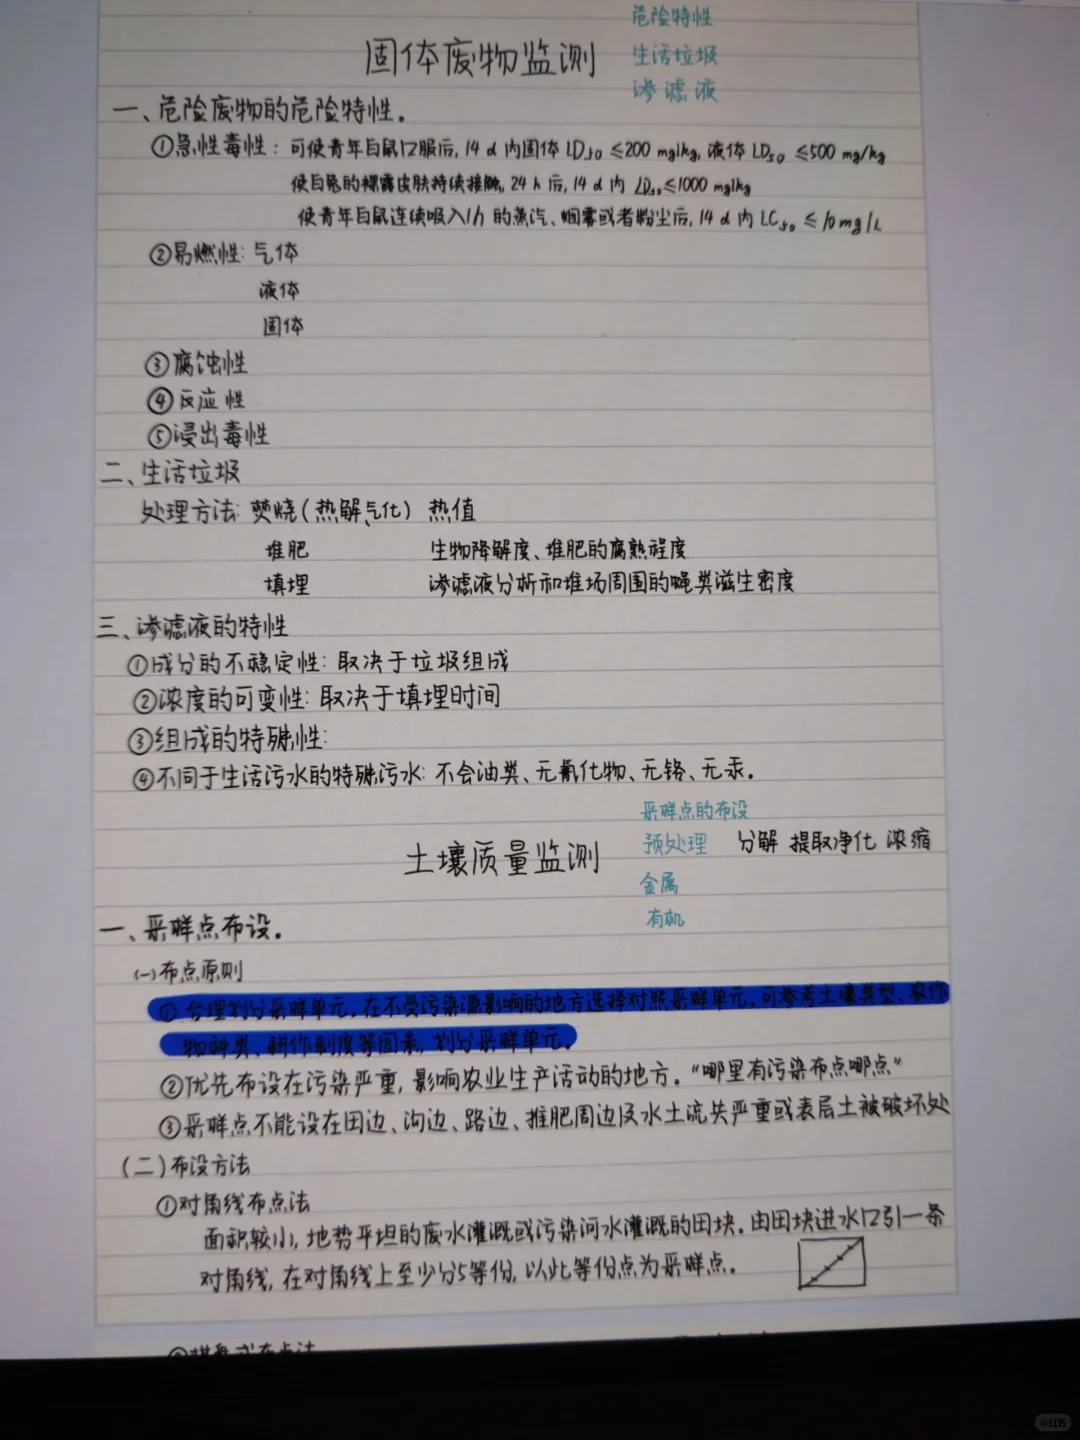 危险特性
固体废物监测
生活垃圾
渗滤液
一、危险废物的危险特性.
①急性毒性：可使青年白鼠口服后, 14 d 内固体 LD50 ≤200 mg/kg, 液体 LD50 ≤500 mg/kg
使白兔的裸露皮肤持续接触, 24 h 后, 14 d 内 LD50≤1000 mg/kg
使青年白鼠连续吸入1h 的蒸汽、烟雾或者粉尘后, 14 d 内 LC50 ≤ 10mg/L
②易燃性: 气体
液体
固体
③腐蚀性
④反应性
⑤浸出毒性
二、生活垃圾
处理方法: 焚烧(热解气化) 热值
堆肥 生物降解度、堆肥的腐熟程度
填埋 渗滤液分析和堆场周围的蝇类滋生密度
三、渗滤液的特性
①成分的不稳定性: 取决于垃圾组成
②浓度的可变性: 取决于填埋时间
③组成的特殊性:
④不同于生活污水的特殊污水: 不含油类、无氰化物、无铬、无汞.
采样点的布设
土壤质量监测
预处理 分解 提取净化 浓缩
金属
有机
一、采样点布设.
(一)布点原则
① 合理划分采样单元. 在不受污染源影响的地方选择对照采样单元. 可参考土壤类型、农作
物种类、耕作制度等因素, 划分采样单元.
②优先布设在污染严重, 影响农业生产活动的地方. “哪里有污染布点哪点”
③采样点不能设在田边、沟边、路边、堆肥周边及水土流失严重或表层土被破坏处
(二)布设方法
①对角线布点法
面积较小, 地势平坦的废水灌溉或污染河水灌溉的田块. 由田块进水口引一条
对角线, 在对角线上至少分5等份, 以此等份点为采样点.
②棋盘式布点法
小红书